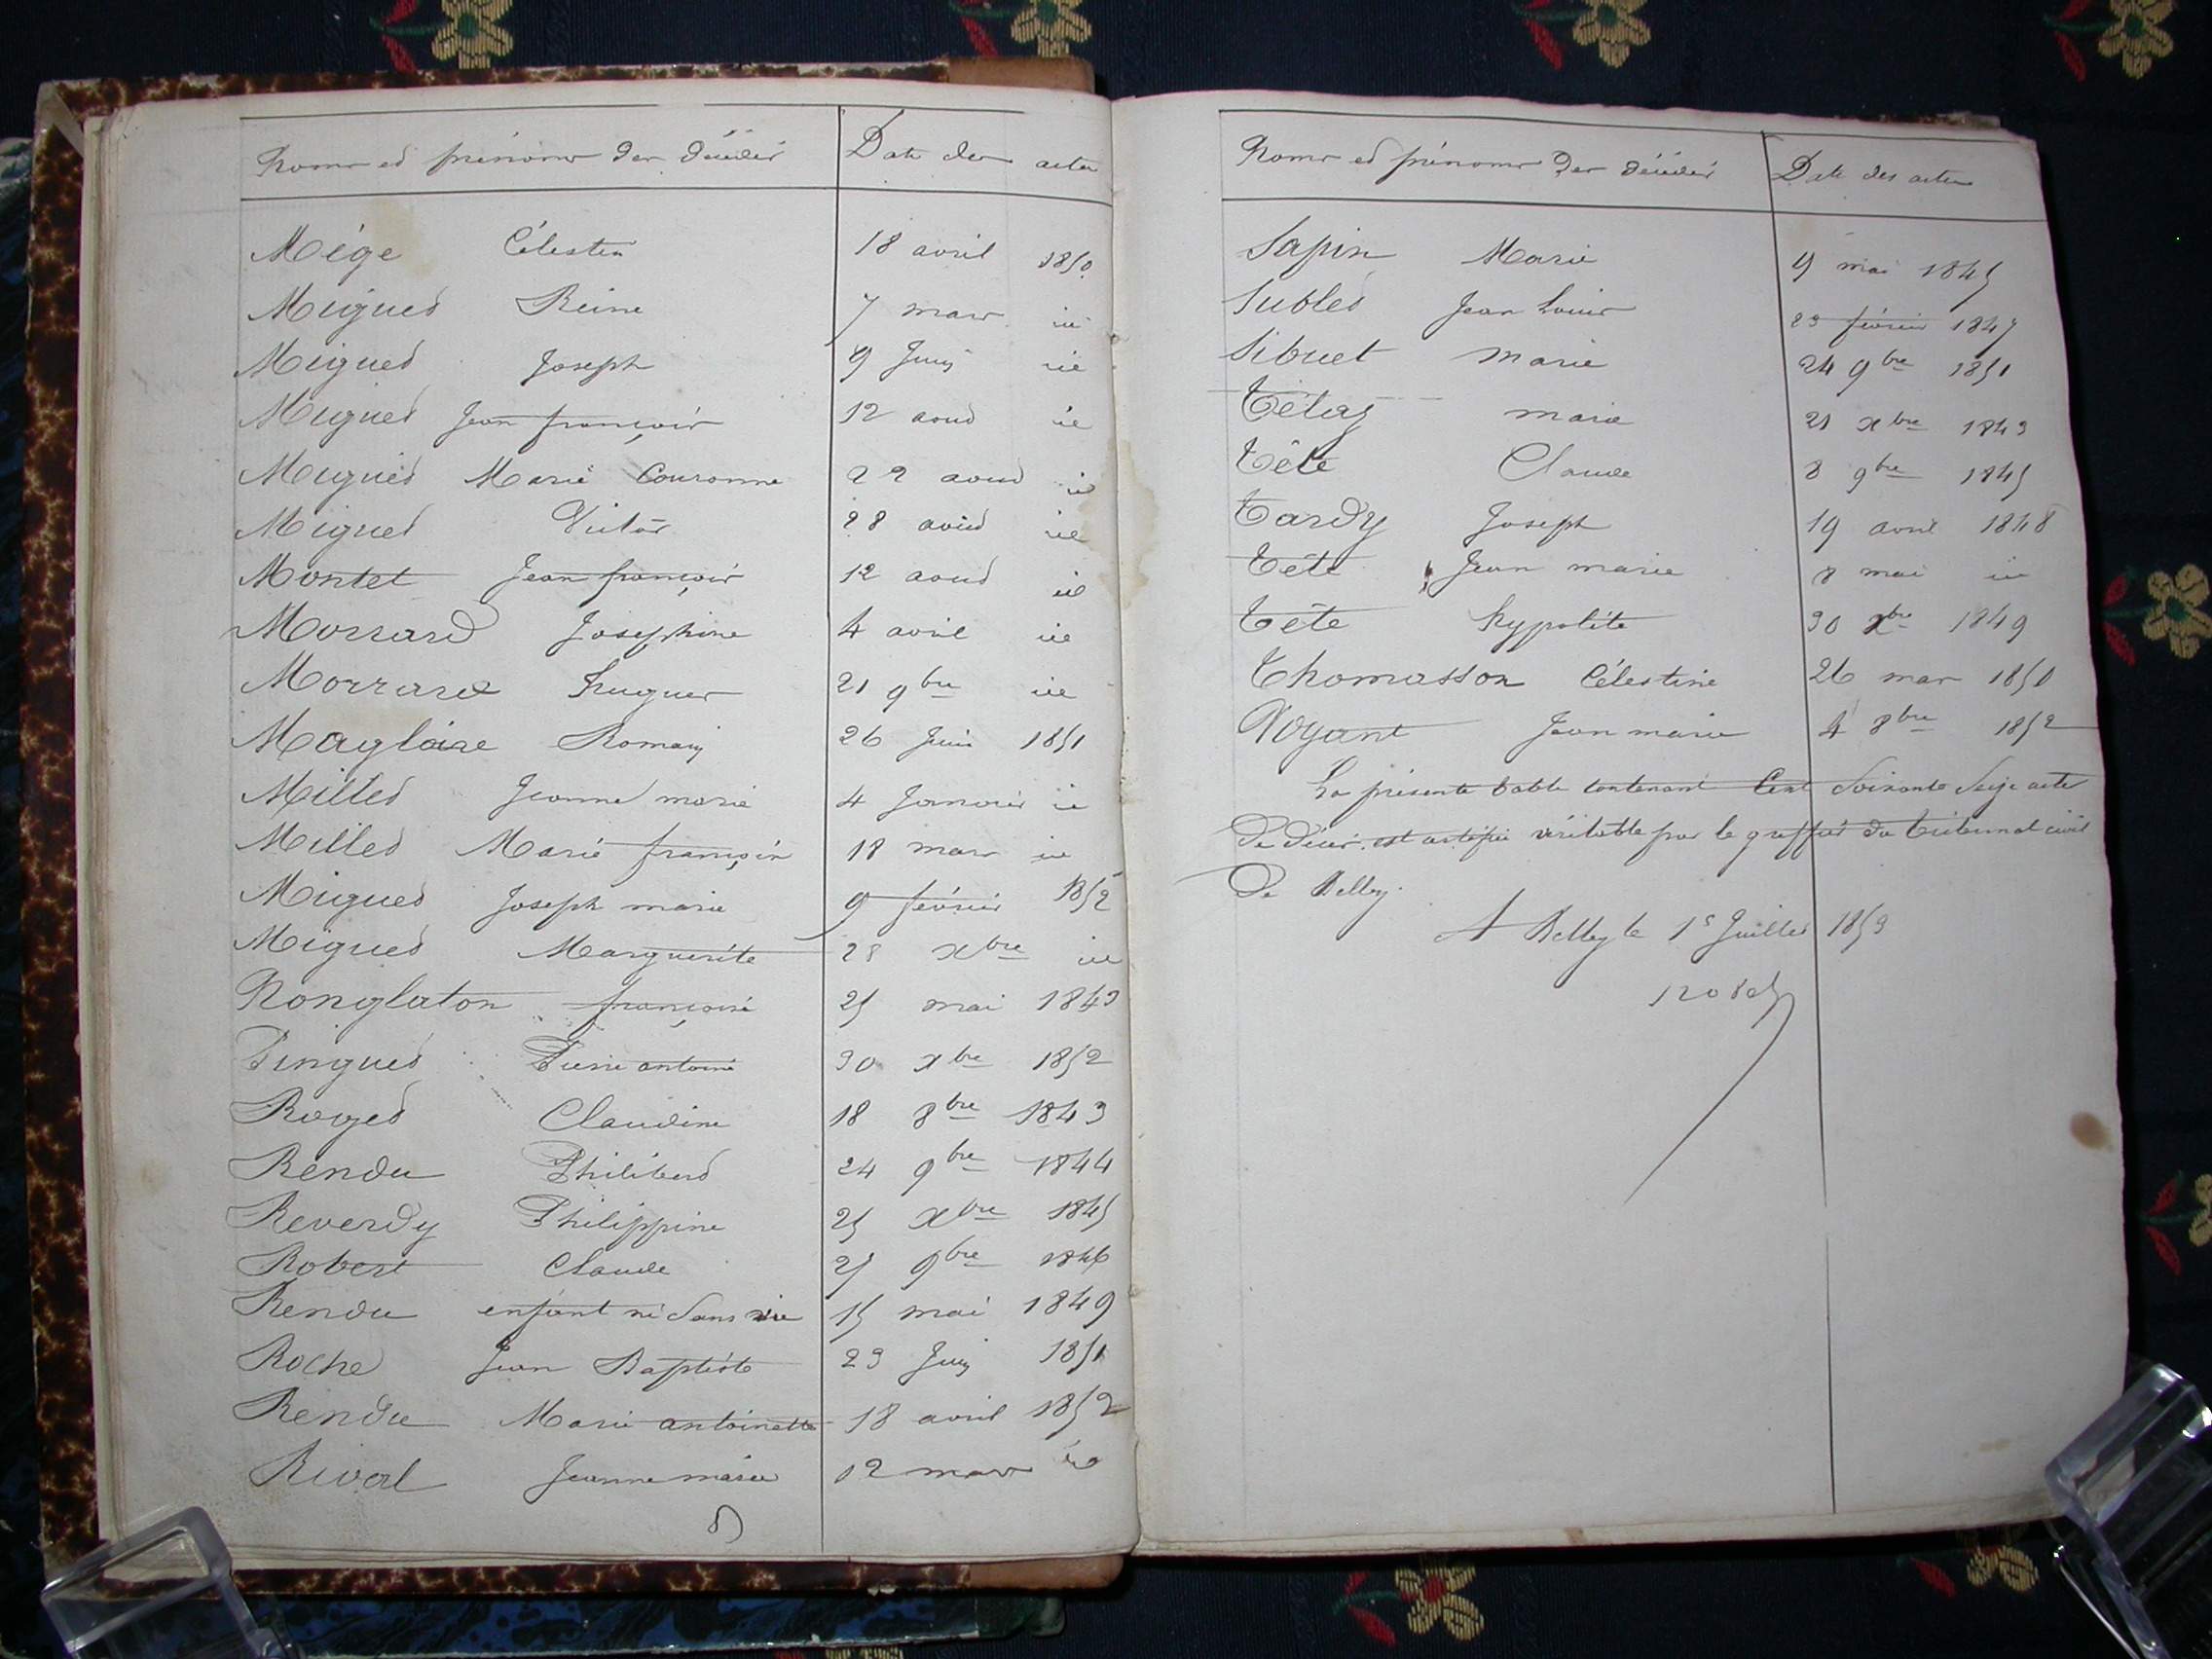 Noms et prénoms des décédés Date des actes
Mège Célestin 18 avril 1850
Miguet Reine 7 mars id
Miguet Joseph 9 Juin id
Miguet Jean françois 12 aout id
Miguet Marie Couronne 22 aout id
Miguet Victor 28 aout id
Montet Jean françois 12 aout id
Morrard Josephine 4 avril id
Morrard hugues 21 9bre id
Magloire Romain 26 Juin 1851
Millet Jeanne marie 4 Janvier id
Millet Marie 18 mars id
Miguet Joseph marie 9 février 1852
Miguet Marguerite 28 xbre id
Nonglaton françoise 25 mai 1843
Pinguet Pierre antoine 30 xbre 1852
Roget Claudine 18 8bre 1843
Rendu Philibert 24 9bre 1844
Reverdy Philippine 25 xbre 1845
Robert Claude 25 9bre 1846
Rendu enfant né sans vie 15 mai 1849
Roche Jean Baptiste 23 Juin 1851
Rendu Marie antoinette 18 avril 1852
Rival Jeanne marie 12 mars id
Noms et prénoms des décédés Date des actes
Sapin Marie 9 mai 1845
Sublet Jean Louis 23 février 1847
Sibuet marie 24 9bre 1851
marie 21 xbre 1843
Tête Claude 8 9bre 1845
Tardy Joseph 19 avril 1848
Tête Jean marie 8 mai id
Tête hypolite 30 xbre 1849
Thomasson Célestine 26 mars 1850
Voyant Jean marie 4 8bre 1852
La présente table contenant Cent Soixante Seize actes
De décès est certifiée véritable par le greffier du tribunal civil
De Belley.
A Belley le 1er Juillet 1853